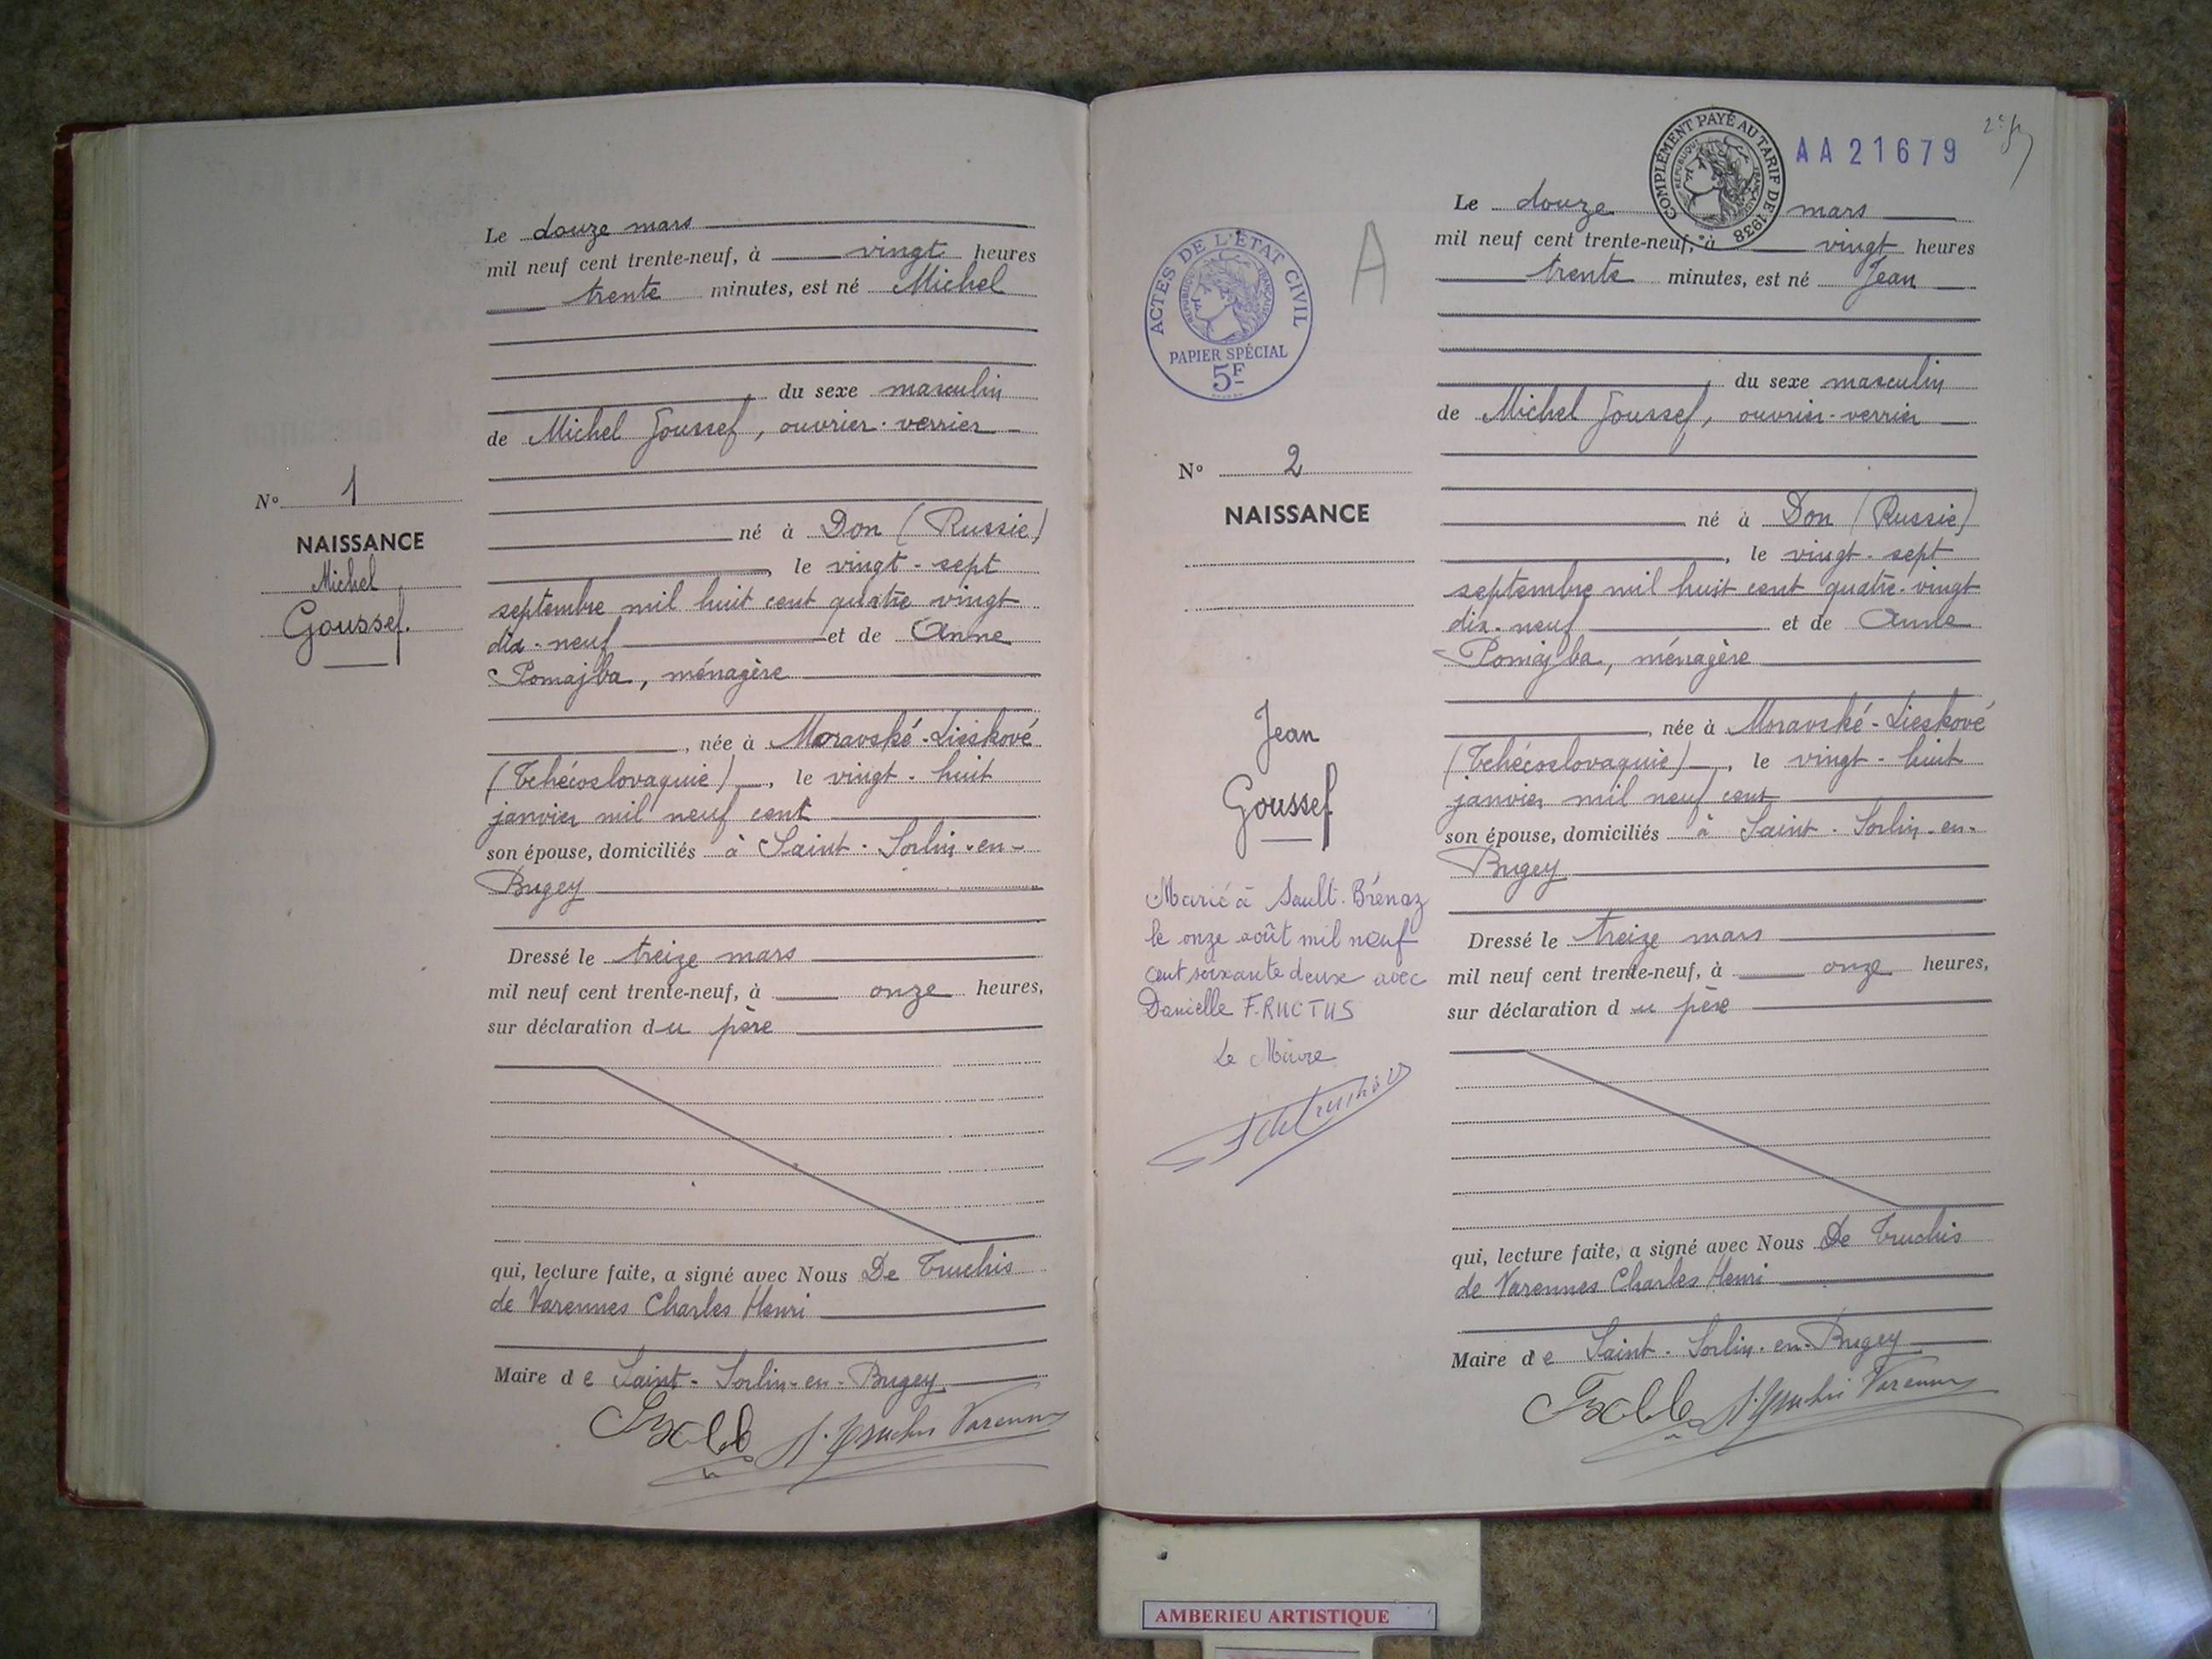 Le douze mars
mil neuf cent trente-neuf, à vingt heures
trente minutes, est né Michel
du sexe masculin
de Michel Goussef, ouvrier-verrier
N° 1
NAISSANCE
Michel
Goussef.
né à Don (Russie)
, le vingt-sept
septembre mil huit cent quatre vingt
dix-neuf et de Anne
Pomajba, ménagère
, née à Moravské-Lieskové
(Tchécoslovaquie), le vingt-huit
janvier mil neuf cent
son épouse, domiciliés à Saint-Sorlin-en-
Bugey
Dressé le treize mars
mil neuf cent trente-neuf, à onze heures,
sur déclaration du père
qui, lecture faite, a signé avec Nous De Truchis
de Varennes Charles Henri
Maire de Saint-Sorlin-en-Bugey
COMPLÉMENT PAYÉ AU TARIF DE 1938
RÉPUBLIQUE FRANÇAISE
AA21679
ACTES DE L'ÉTAT CIVIL
RÉPUBLIQUE FRANÇAISE
PAPIER SPÉCIAL
5F
A
Le douze mars
mil neuf cent trente-neuf, à vingt heures
trente minutes, est né Jean
du sexe masculin
de Michel Goussef, ouvrier-verrier
N° 2
NAISSANCE
né à Don (Russie)
, le vingt-sept
septembre mil huit cent quatre-vingt
dix-neuf et de Anne
Pomajba, ménagère
, née à Moravské-Lieskové
(Tchécoslovaquie), le vingt-huit
janvier mil neuf cent
son épouse, domiciliés à Saint-Sorlin-en-
Bugey
Jean
Goussef
Marié à Sault-Brénaz
le onze août mil neuf
cent soixante deux avec
Danielle FRUCTUS
Le Maire
Dressé le treize mars
mil neuf cent trente-neuf, à onze heures,
sur déclaration du père
qui, lecture faite, a signé avec Nous De Truchis
de Varennes Charles Henri
Maire de Saint-Sorlin-en-Bugey
AMBERIEU ARTISTIQUE